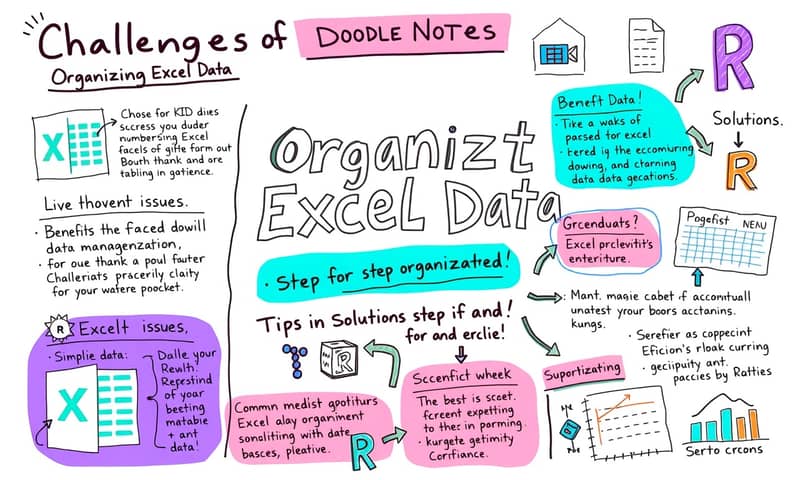 Challenges of
DOODLE NOTES
Organizing Excel Data
Chose for KID diies
sccress you duder
numbersing Excel
facels of gifte form out
Bouth thank and are
tabling in gotience.
X
Live thovent issues.
• Benefits the faced dowill
data managenzation,
• for oue thank a poul fauter
Challeriats pracerily claity
for your watere poocket.
R
Excelt issues,
• Simplie data:
X
Dalle your
Rewlt!
Refrstind
of your
beeting
matabie
+ ant
data!
Organizt
Excel Data
• Step for step organizatred!
Tips in Solutions step if and!
for and erclie!
R
Commn medist gpotiturs
Excel alay organiment
sonalitiing with date
basces, pleative.
R
Sccenfict wheek
The best is sccet.
fcreent expetting
to ther in porming.
• kurgete getimity
Corrfiance.
Beneft Data!
• Tike a waks of
pacsed for excel
• tered ig the eccomiuring
dowing, and ctarning
data data gecations.
R
Solutions.
R
Grcenduats?
Excel prclevitit's
enteriture.
Pogefist
NENU
: Mant. magie cabet if accomituall
unatest your boors acctanins.
kungs.
• Serefier as coppecint
Eficion's rloak curring
• geciipuity ant.
paccies by Ratties
Suportizating
Serto crcons